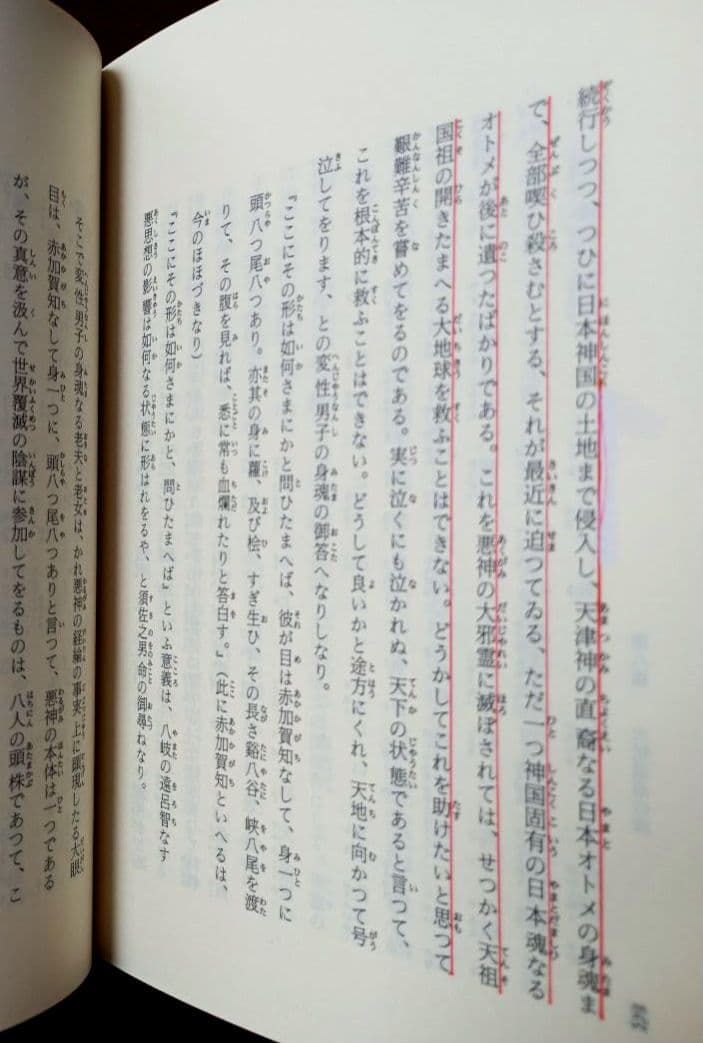 続行しつつ、つひに日本神国の土地まで侵入し、天津神の直裔なる日本オトメの身魂ま
で、全部喫ひ殺さむとする、それが最近に迫つてゐる、ただ一つ神国固有の日本魂なる
オトメが後に遺つたばかりである。これを悪神の大邪霊に滅ぼされては、せつかく天祖
国祖の開きたまへる大地球を救ふことはできない。どうかしてこれを助けたいと思つて
艱難辛苦を嘗めてをるのである。実に泣くにも泣かれぬ、天下の状態であると言つて、
これを根本的に救ふことはできない。どうして良いかと途方にくれ、天地に向かつて号
泣してをります、との変性男子の身魂の御答へなりしなり。
『ここにその形は如何さまにかと問ひたまへば、彼が目は赤加賀知なして、身一つに
頭八つ尾八つあり。亦其の身に蘿、及び桧、すぎ生ひ、その長さ谿八谷、峡八尾を渡
りて、その腹を見れば、悉に常も血爛れたりと答白す。』（此に赤加賀知といへるは、
今のほほづきなり）
『ここにその形は如何さまにかと、問ひたまへば』といふ意義は、八岐の遠呂智なす
悪思想の影響は如何なる状態に形はれをるや、と須佐之男命の御尋ねなり。
そこで変性男子の身魂なる老夫と老女は、かれ悪神の経綸の事実上に顕現したる大眼
目は、赤加賀知なして身一つに、頭八つ尾八つありと言つて、悪神の本体は一つである
が、その真意を汲んで世界覆滅の陰謀に参加してをるものは、八人の頭株であつて、こ